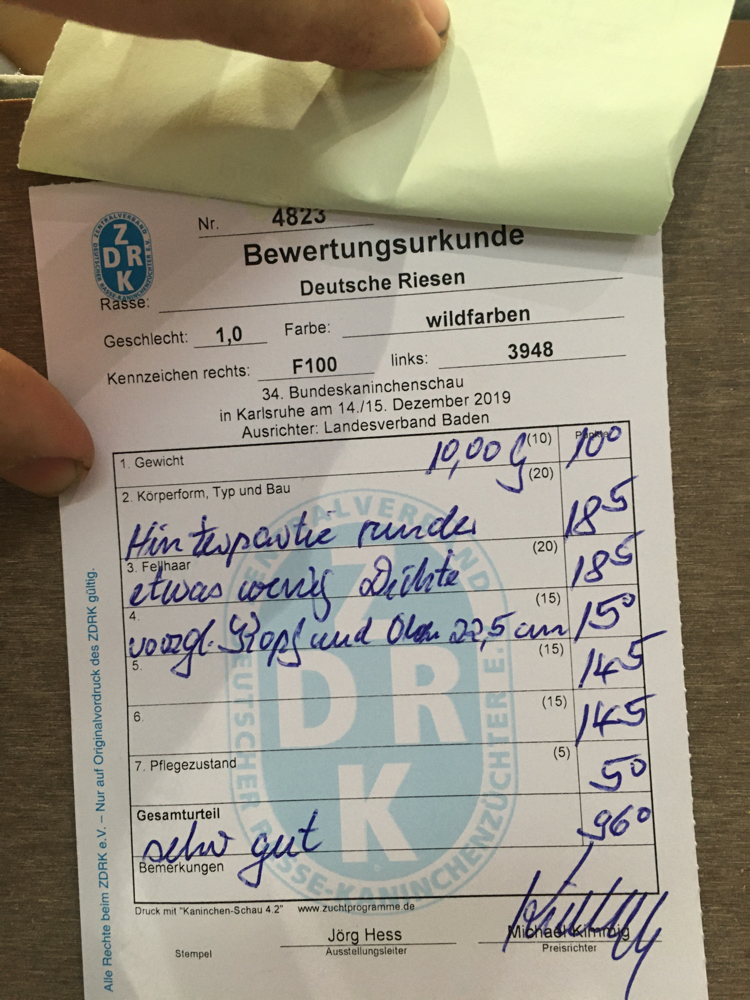 Nr. 4823
ZENTRALVERBAND DEUTSCHER RASSE-KANINCHENZÜCHTER E.V.
ZDRK
Bewertungsurkunde
Rasse: Deutsche Riesen
Geschlecht: 1,0 Farbe: wildfarben
Kennzeichen rechts: F100 links: 3948
34. Bundeskaninchenschau
in Karlsruhe am 14./15. Dezember 2019
Ausrichter: Landesverband Baden
Punkte
1. Gewicht 10,00 g (10) 10⁰
2. Körperform, Typ und Bau (20)
Hinterpartie runder 18⁵
3. Fellhaar (20)
etwas wenig Dichte 18⁵
4. (15)
vorzgl. Kopf und Ohren 22,5 cm 15⁰
5. (15) 14⁵
6. (15) 14⁵
7. Pflegezustand (5) 5⁰
Gesamturteil
sehr gut 96⁰
Bemerkungen
Druck mit "Kaninchen-Schau 4.2" www.zuchtprogramme.de
Jörg Hess Michael Kimmig
Stempel Ausstellungsleiter Preisrichter
Alle Rechte beim ZDRK e.V. – Nur auf Originalvordruck des ZDRK gültig.